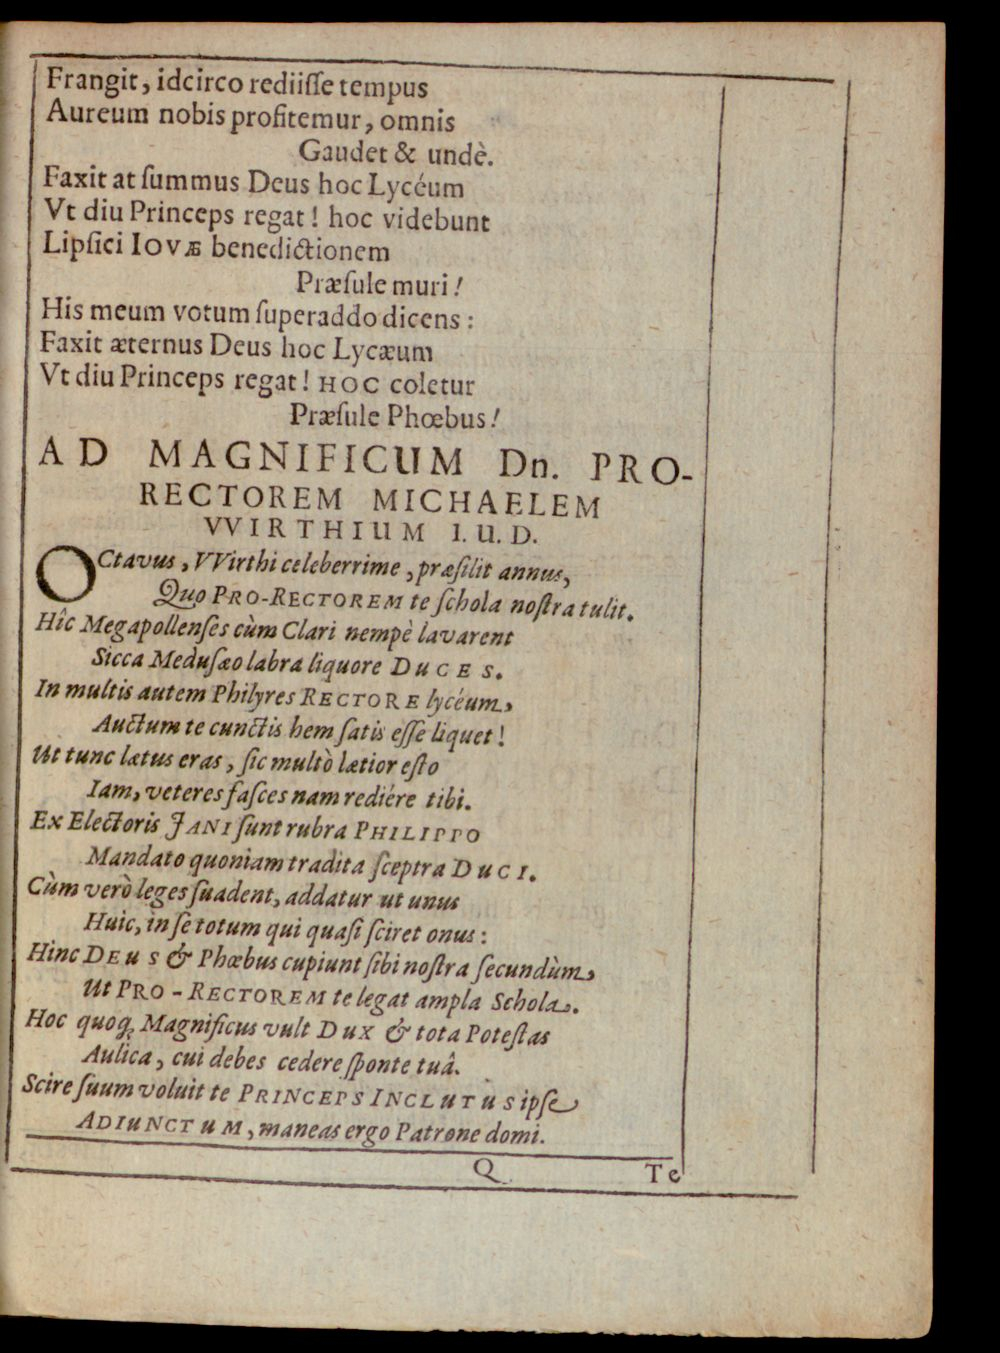 Frangit, idcirco rediiſſe tempus
Aureum nobis profitemur, omnis
Gaudet & undè.
Faxit at ſummus Deus hoc Lycéum
Vt diu Princeps regat! hoc videbunt
Lipſici IOVÆ benedictionem
Præſule muri!
His meum votum ſuperaddo dicens:
Faxit æternus Deus hoc Lycæum
Vt diu Princeps regat! HOC coletur
Præſule Phœbus!
AD MAGNIFICUM Dn. PRO-
RECTOREM MICHAELEM
VVIRTHIUM I. U. D.
OCtavus, VVirthi celeberrime, præſilit annus,
Quo PRO-RECTOREM te ſchola noſtra tulit.
Hîc Megapollenſes cùm Clari nempè lavarent
Sicca Meduſæo labra liquore DUCES.
In multis autem Philyres RECTORE lycéum,
Auctum te cunctis hem ſatis eſſe liquet!
Ut tunc lætus eras, ſic multò lætior eſto
Iam, veteres faſces nam rediére tibi.
Ex Electoris JANI ſunt rubra PHILIPPO
Mandato quoniam tradita ſceptra DUCI.
Cùm verò leges ſuadent, addatur ut unus
Huic, in ſe totum qui quaſi ſciret onus:
Hinc DEUS & Phœbus cupiunt ſibi noſtra ſecundùm,
Ut PRO-RECTOREM te legat ampla Schola.
Hoc quoq; Magnificus vult DUX & tota Poteſtas
Aulica, cui debes cedere ſponte tuâ.
Scire ſuum voluit te PRINCEPS INCLUTUS ipſe
ADIUNCTUM, maneas ergo Patrone domi.
Q Te